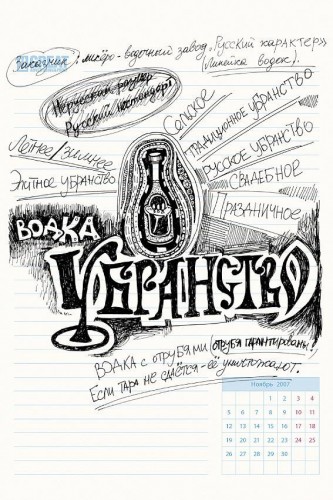 Заказчик: ликёро-водочный завод „Русский характер»
(Линейка водок).
Русский
Сельское
Традиционное убранство
Русское убранство
Свадебное
Праздничное
Летнее/зимнее
Элитное убранство
ВОДКА
Убранство
Водка с отрубями (отрубя гарантированы!
Если тара не сдаётся - её уничтожают.
Ноябрь 2007
1 2 3 4
5 6 7 8 9 10 11
12 13 14 15 16 17 18
19 20 21 22 23 24 25
26 27 28 29 30